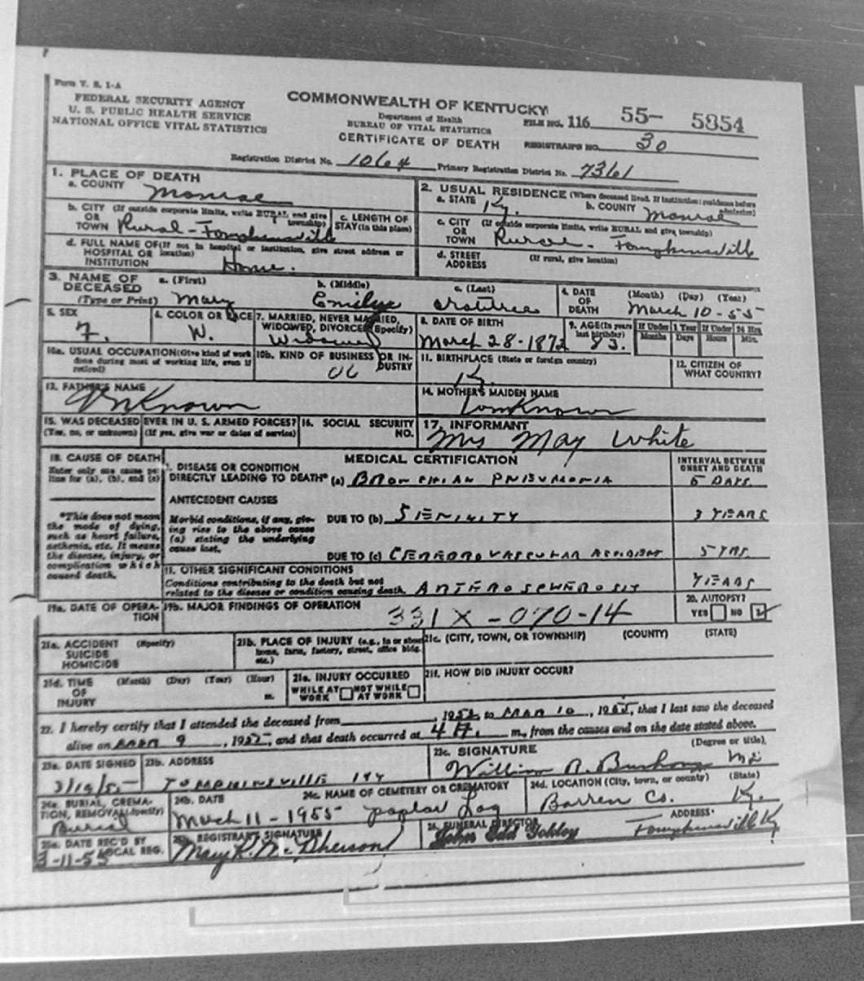 Form V. S. 1-A
FEDERAL SECURITY AGENCY
U. S. PUBLIC HEALTH SERVICE
NATIONAL OFFICE VITAL STATISTICS
COMMONWEALTH OF KENTUCKY
Department of Health
BUREAU OF VITAL STATISTICS
CERTIFICATE OF DEATH
FILE NO. 116 55- 5854
REGISTRAR'S NO. 30
Registration District No. 1064 Primary Registration District No. 7361
1. PLACE OF DEATH
a. COUNTY Monroe
b. CITY (If outside corporate limits, write RURAL and give township)
OR
TOWN Rural - Tompkinsville
c. LENGTH OF STAY (in this place)
d. FULL NAME OF (If not in hospital or institution, give street address or location)
HOSPITAL OR
INSTITUTION Home.
2. USUAL RESIDENCE (Where deceased lived. If institution: residence before admission)
a. STATE Ky. b. COUNTY Monroe
c. CITY (If outside corporate limits, write RURAL and give township)
OR
TOWN Rural - Tompkinsville
d. STREET ADDRESS (If rural, give location)
3. NAME OF DECEASED
(Type or Print)
a. (First) Mary
b. (Middle) Emilye
c. (Last) Crabtree
4. DATE OF DEATH (Month) (Day) (Year)
March 10-55
5. SEX
F.
6. COLOR OR RACE
W.
7. MARRIED, NEVER MARRIED, WIDOWED, DIVORCED (Specify)
Widowed
8. DATE OF BIRTH
March 28-1872
9. AGE (In years last birthday)
83.
If Under 1 Year
Months Days
If Under 24 Hrs
Hours Min.
10a. USUAL OCCUPATION (Give kind of work done during most of working life, even if retired)
10b. KIND OF BUSINESS OR INDUSTRY
11. BIRTHPLACE (State or foreign country)
Ky.
12. CITIZEN OF WHAT COUNTRY?
13. FATHER'S NAME
Unknown
14. MOTHER'S MAIDEN NAME
Unknown
15. WAS DECEASED EVER IN U. S. ARMED FORCES?
(Yes, no, or unknown) (If yes, give war or dates of service)
16. SOCIAL SECURITY NO.
17. INFORMANT
Mrs May White
18. CAUSE OF DEATH
Enter only one cause per line for (a), (b), and (c)
MEDICAL CERTIFICATION
INTERVAL BETWEEN ONSET AND DEATH
I. DISEASE OR CONDITION
DIRECTLY LEADING TO DEATH* (a) BRONCHIAL PNEUMONIA 5 DAYS
ANTECEDENT CAUSES
*This does not mean the mode of dying, such as heart failure, asthenia, etc. It means the disease, injury, or complication which caused death.
Morbid conditions, if any, giving rise to the above cause (a) stating the underlying cause last.
DUE TO (b) SENILITY 3 YEARS
DUE TO (c) CEREBROVASCULAR ACCIDENT 5 YRS.
II. OTHER SIGNIFICANT CONDITIONS
Conditions contributing to the death but not related to the disease or condition causing death. ARTEROSCLEROSIS YEARS
19a. DATE OF OPERATION
19b. MAJOR FINDINGS OF OPERATION
331X-070-14
20. AUTOPSY?
YES NO
21a. ACCIDENT (Specify)
SUICIDE
HOMICIDE
21b. PLACE OF INJURY (e.g., in or about home, farm, factory, street, office bldg. etc.)
21c. (CITY, TOWN, OR TOWNSHIP) (COUNTY) (STATE)
21d. TIME OF INJURY (Month) (Day) (Year) (Hour) m.
21e. INJURY OCCURRED
WHILE AT WORK NOT WHILE AT WORK
21f. HOW DID INJURY OCCUR?
22. I hereby certify that I attended the deceased from 1952 to MAR 10, 1955, that I last saw the deceased
alive on MAR 9, 1955, and that death occurred at 4 A. m., from the causes and on the date stated above.
23a. DATE SIGNED
23b. ADDRESS
TOMPKINSVILLE KY
23c. SIGNATURE (Degree or title)
William R. Bushong MD
24a. BURIAL, CREMATION, REMOVAL (Specify)
Burial
24b. DATE
March 11-1955
24c. NAME OF CEMETERY OR CREMATORY
Poplar Log
24d. LOCATION (City, town, or county) (State)
Barren Co. Ky.
25a. DATE REC'D BY LOCAL REG.
3-11-55
25b. REGISTRAR'S SIGNATURE
Mary K. McPherson
26. FUNERAL DIRECTOR ADDRESS
Tompkinsville Ky